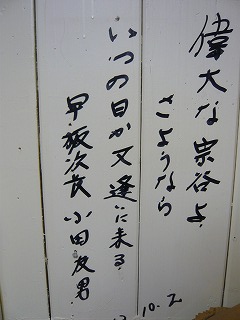 偉大な宗谷よ
さようなら
いつの日か又逢いに来る
早坂次良 小田友男
10.2